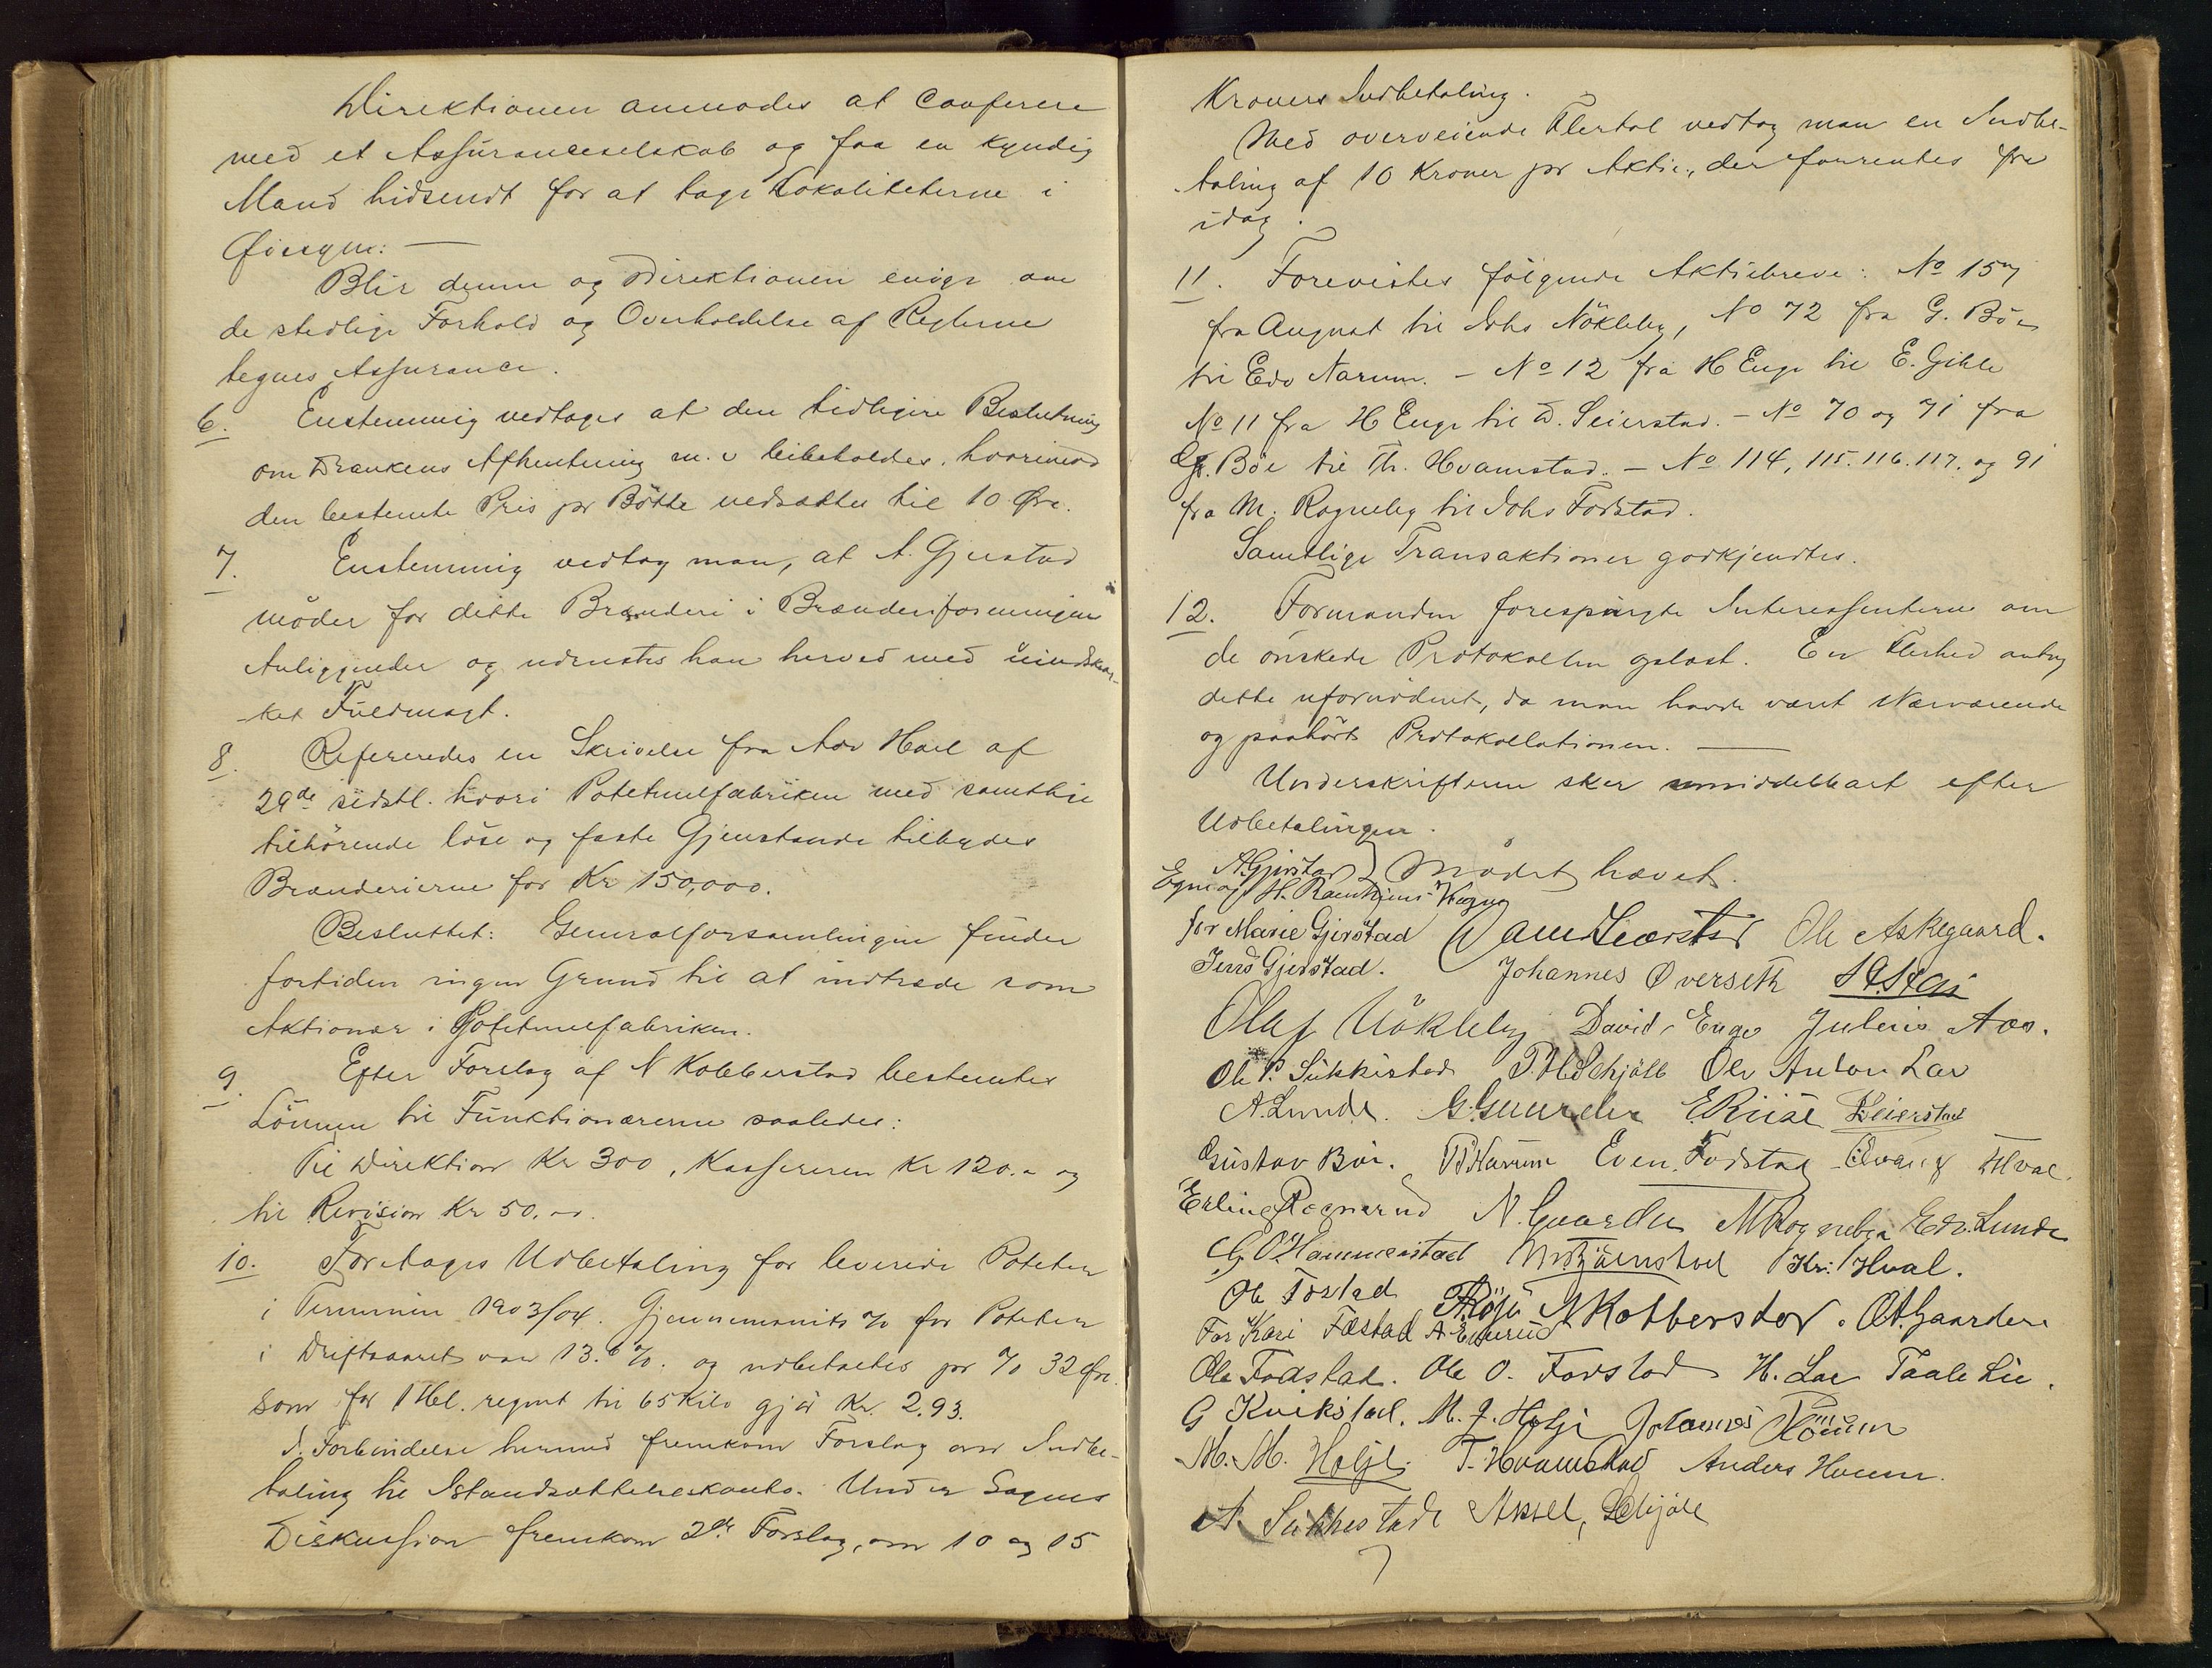 Direktionen anmodes at Conferere
med et Assuranceselskab og faa en kyndig
Mand hidsendt for at tage Lokaliteterne i
Øiesyn: —
Blir denne og Direktionen enige om
de stedlige Forhold og Overholdelse af Reglerne
tegnes Assurance.
6. Enstemmig vedtages at den tidligere Beslutning
om Drankens Afhentning m. v beibeholdes, hvorimod
den bestemte Pris pr Bötte nedsættes til 10 Øre.
7. Enstemmig vedtog man, at A. Gjerstad
möder for dette Brænderi i Brænderiforeningens
Anliggender og udrustes han herved med uindskræn-
ket Fuldmagt.
8. Refereredes en Skrivelse fra Adv Hoel af
29de sidstl. hvori Potetmelfabriken med samtlige
tilhörende löse og faste Gjenstande tilbydes
Brænderierne for Kr 150,000.
Besluttet: Generalforsamlingen finder
fortiden ingen Grund til at indtræde som
Aktionær i Potetmelfabriken.
9. Efter Forslag af N Kobberstad bestemtes
Lönnen til Funktionærerne saaledes:
Til Direktion Kr 300, Kassereren Kr 120.- og
til Revision Kr 50.-.
10. Foretages Udbetaling for leverede Poteter
i Terminen 1903/04. Gjennemsnits % for Poteter
i Driftsaaret var 13.6 %. og udbetaltes pr % 32 Øre.
som for 1 Hl. regnet til 65 Kilo gjör Kr. 2.93.
I Forbindelse hermed fremkom Forslag om Indbe-
taling til Istandsættelseskonto. Under Sagens
Diskussion fremkom 2de Forslag, om 10 og 15
Kroners Indbetaling.
Med overveiende Flertal vedtog man en Indbe-
taling af 10 Kroner pr Aktie, der forrentes fra
idag.
11. Forevistes fölgende Aktiebreve: No 15
fra August til Johs Nökleby, No 72 fra G. Böe
til Edv Narum. - No 12 fra H Enge til E. Gihle
No 11 fra H Enge til D. Seierstad. - No 70 og 71 fra
G. Böe til Th. Hvamstad. - No 114, 115. 116. 117. og 91
fra M. Rogneby til Johs Fodstad.
Samtlige Transaktioner godkjendtes.
12. Formanden forespurgte Interessenterne om
de önskede Protokollen oplæst. En Flerhed antog
dette ufornödent, da man havde været Nærværende
og paahört Protokollationen. —
Underskriften sker umiddelbart efter
Udbetalingen.
A Gjerstad Mödet hævet.
Egne og H. Ramtkjens Vegne
for Marie Gjerstad Ole Askegaard.
Jens Gjerstad. Johannes Overseth
Olaf Nökleby David Enge Julius Aas.
Ole P. Sukkestad P. H Schjöll Ole Anton Lae
A. Lunde. G. Gaarder E. Riise Seierstad
Gustav Böe. P Narum Even Fodstad Hval.
Erling Rognerud N. Gaarder M Rogneby Edv. Lunde
G O Hammerstad M Bjørnstad Kr: Hval.
Ole Fostad N Kobberstad. O A Gaarder
For Kari Fæstad A Ennerud
Ole Fodstad. Ole O. Fodstad H. Lae Paale Lie.
G Kvikstad. M. J. Holje Johannes
M. M. Holje. T. Hvamstad Anders
A. Sukkestad Aksel, Schjöll